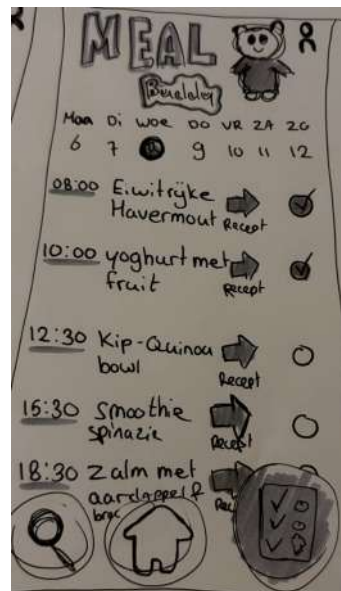 MEAL
Maa Di Woe DO VR ZA ZO
6 7 9 10 11 12
08:00 Eiwitrijke
Havermout Recept
10:00 yoghurt met
fruit Recept
12:30 Kip-Quinoa
bowl Recept
15:30 Smoothie
spinazie Recept
18:30 Zalm met
aardappel &